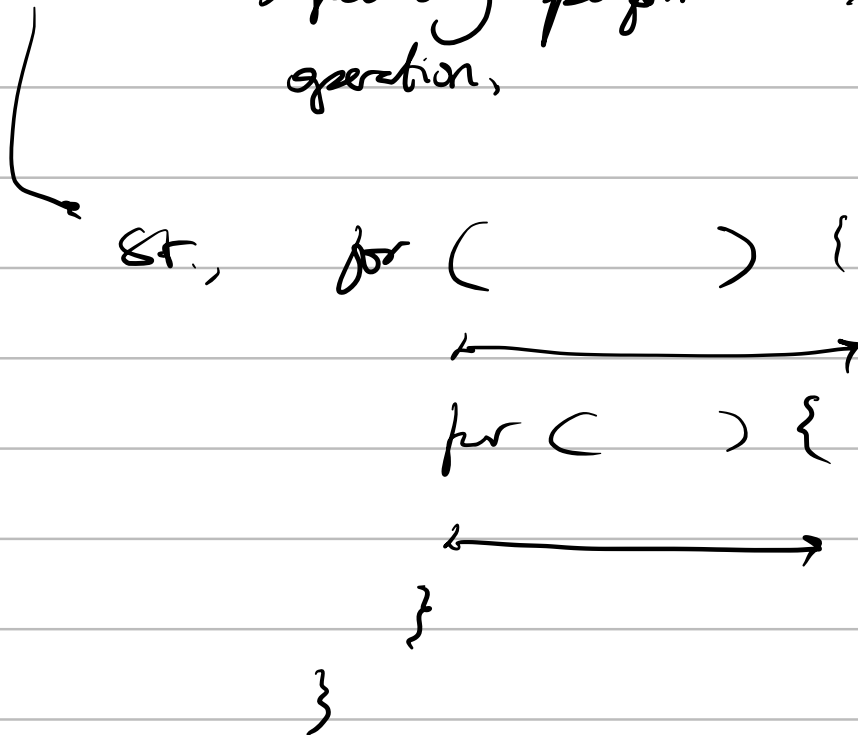 operation,
St., for ( ) {
for ( ) {
}
}